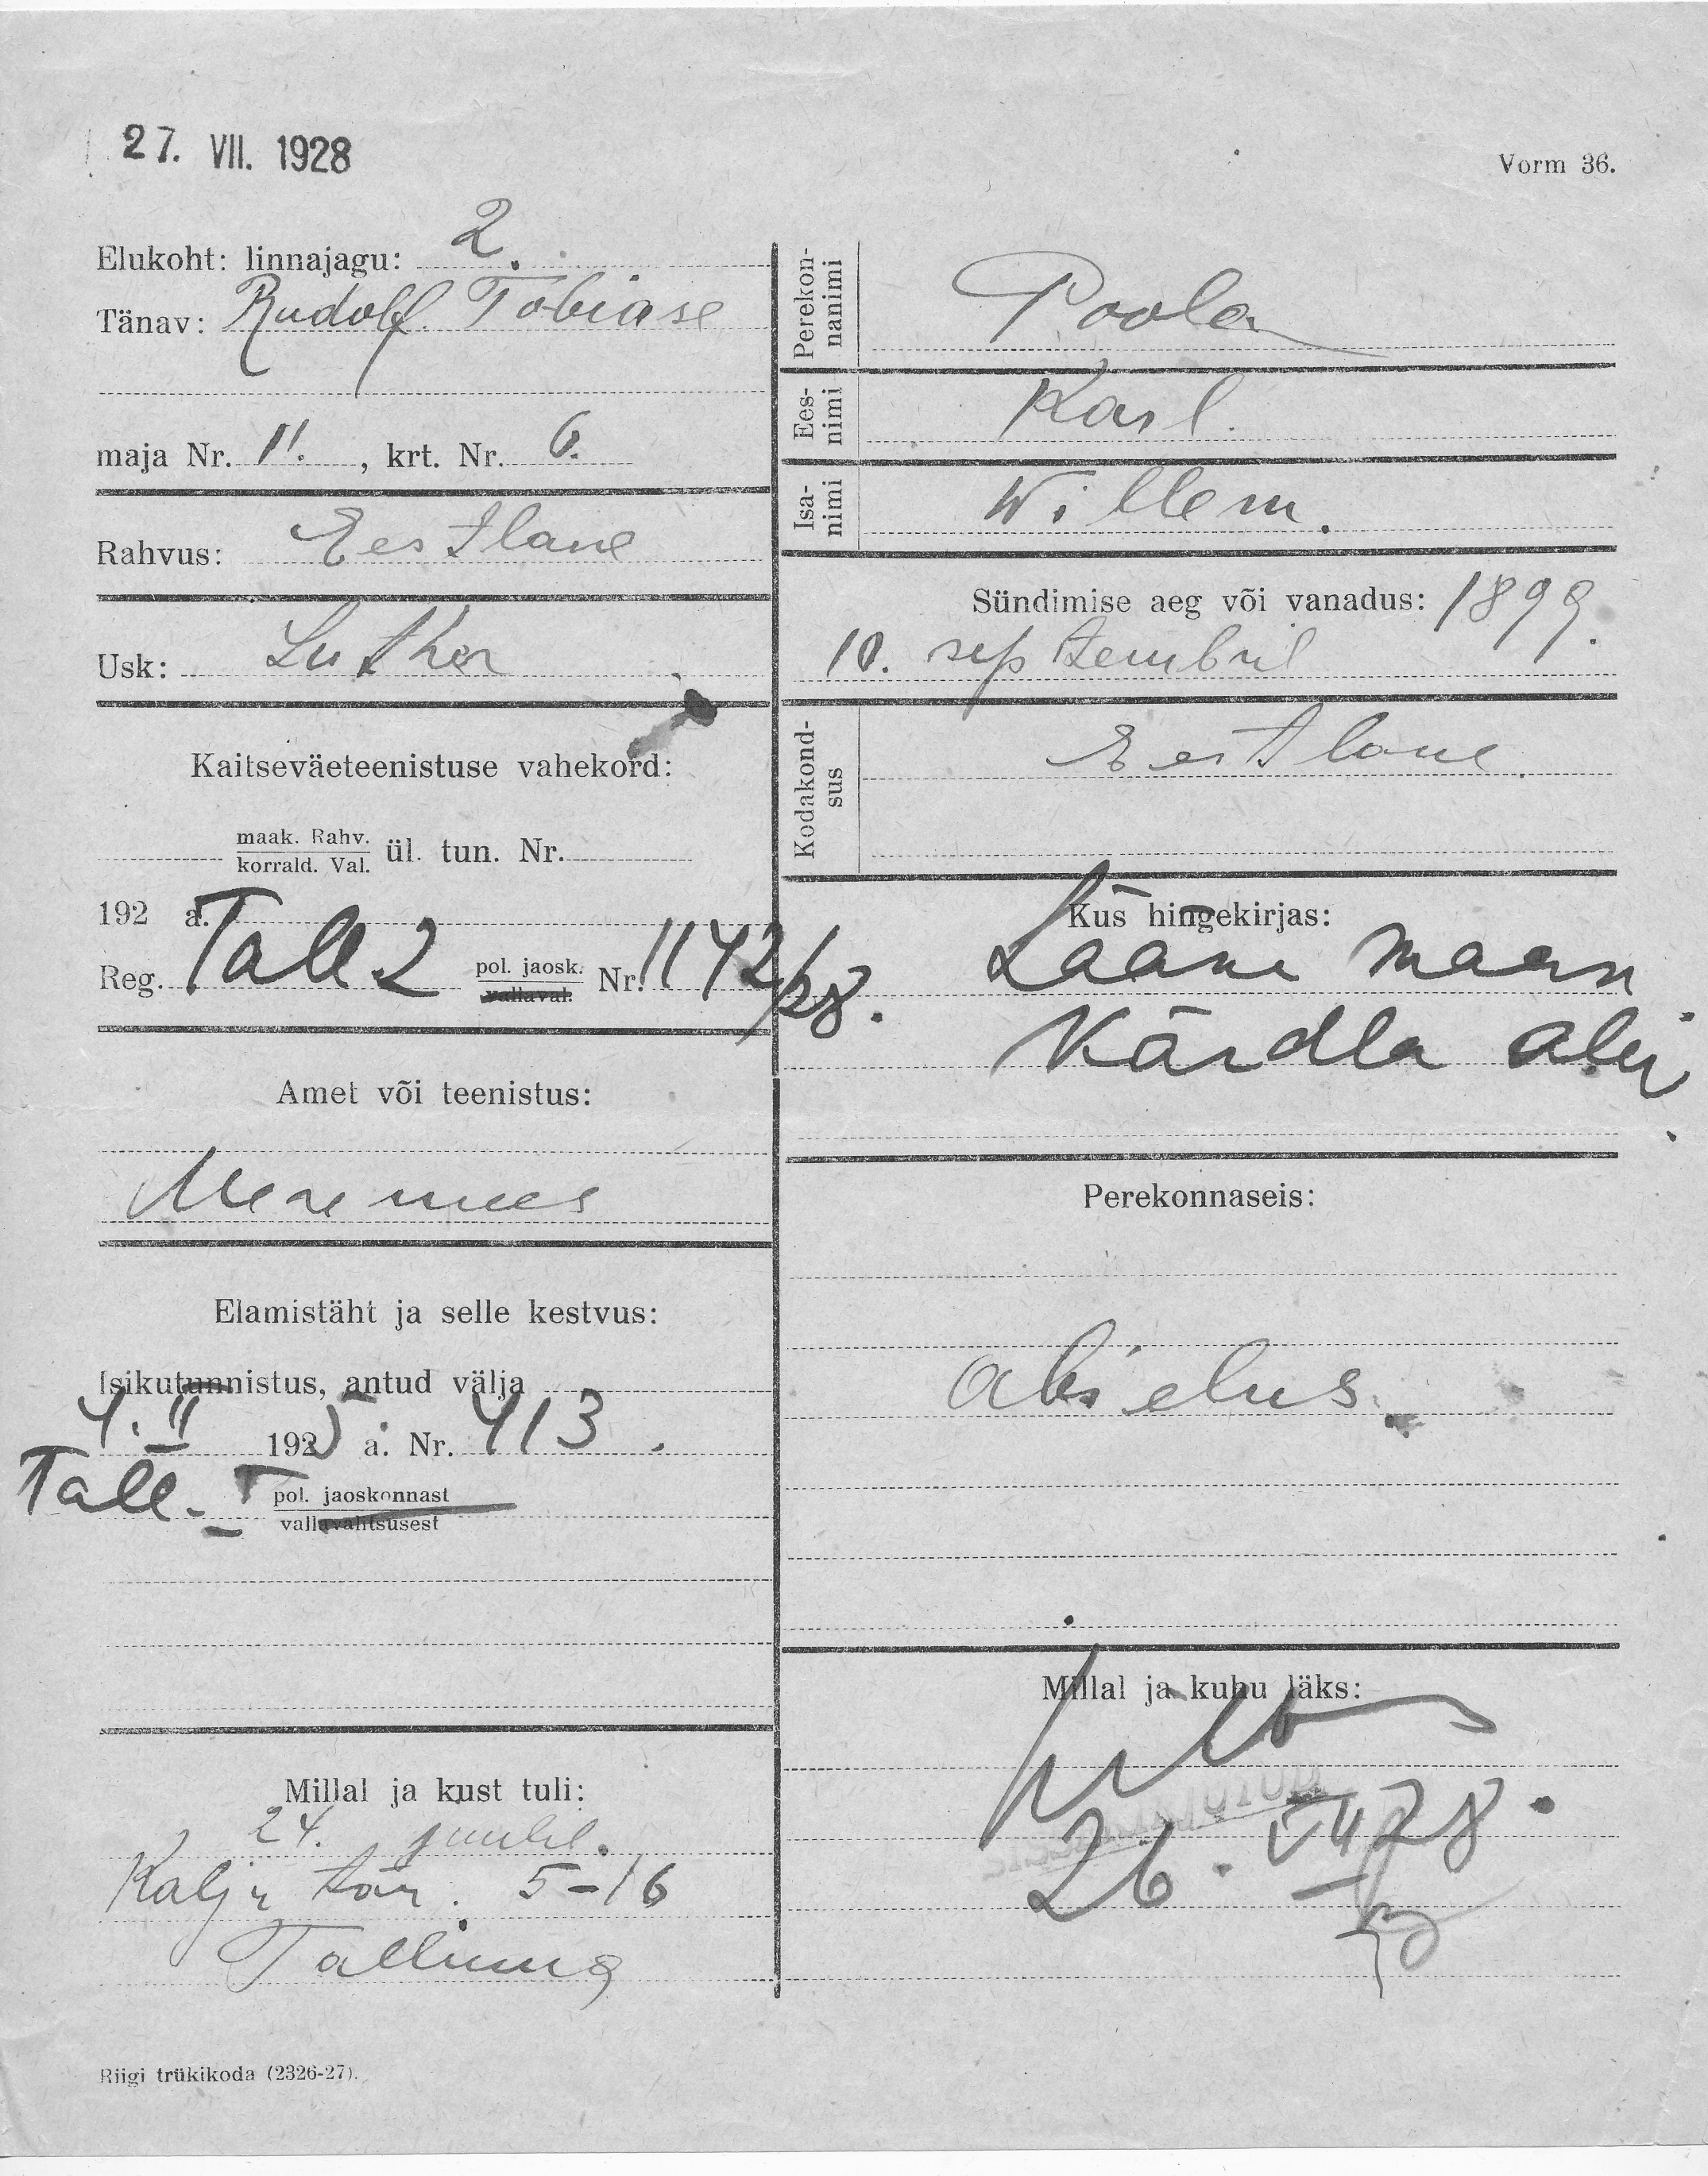 27. VII. 1928
Vorm 36.
Elukoht: linnajagu: 2.
Tänav: Rudolf Tobiase
maja Nr. 11. , krt. Nr. 6.
Rahvus: Eestlane
Usk: Luther
Kaitseväeteenistuse vahekord:
maak. Rahv.
korrald. Val. ül. tun. Nr.
192 a.
Reg. Tall 2 pol. jaosk. Nr. 1142/28.
vallaval.
Amet või teenistus:
Meremees
Elamistäht ja selle kestvus:
Isikutunnistus, antud välja
4. II 1925 a. Nr. 413.
Tall. I pol. jaoskonnast
vallavalitsusest
Millal ja kust tuli:
24. juulil.
Kalju tän. 5-16
Tallinna
Riigi trükikoda (2326-27).
Perekon-
nanimi
Poola
Ees-
nimi
Karl.
Isa-
nimi
Willem.
Sündimise aeg või vanadus: 1899.
10. septembril
Kodakond-
sus
Eestlane.
Kus hingekirjas:
Lääne maan
Kärdla alev
Perekonnaseis:
abielus.
Millal ja kuhu läks:
26. VII 28.